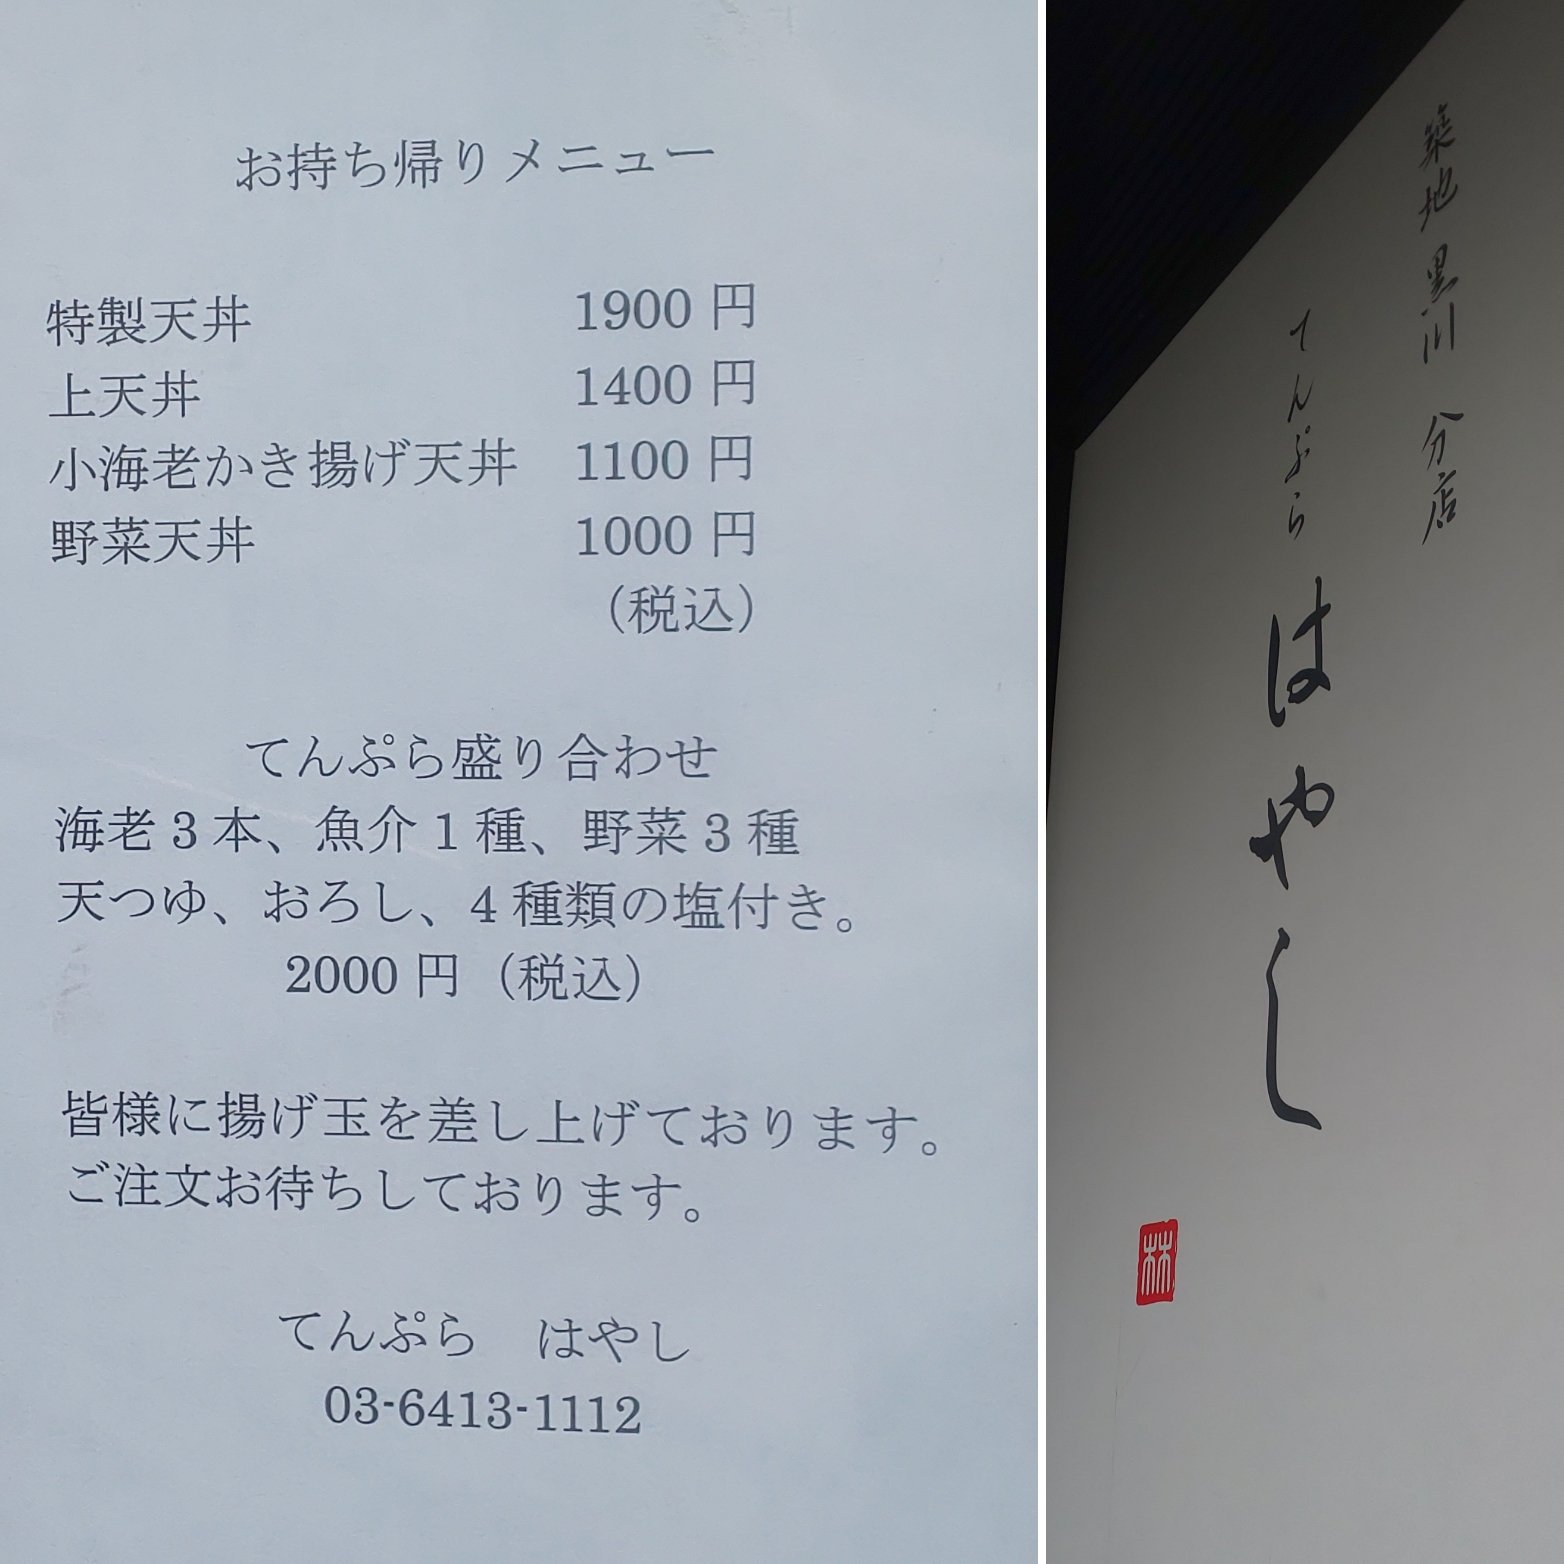 お持ち帰りメニュー
特製天丼 1900円
上天丼 1400円
小海老かき揚げ天丼 1100円
野菜天丼 1000円
（税込）
てんぷら盛り合わせ
海老3本、魚介1種、野菜3種
天つゆ、おろし、4種類の塩付き。
2000円（税込）
皆様に揚げ玉を差し上げております。
ご注文お待ちしております。
てんぷら　はやし
03-6413-1112
築地 黒川 分店
てんぷら はやし
林